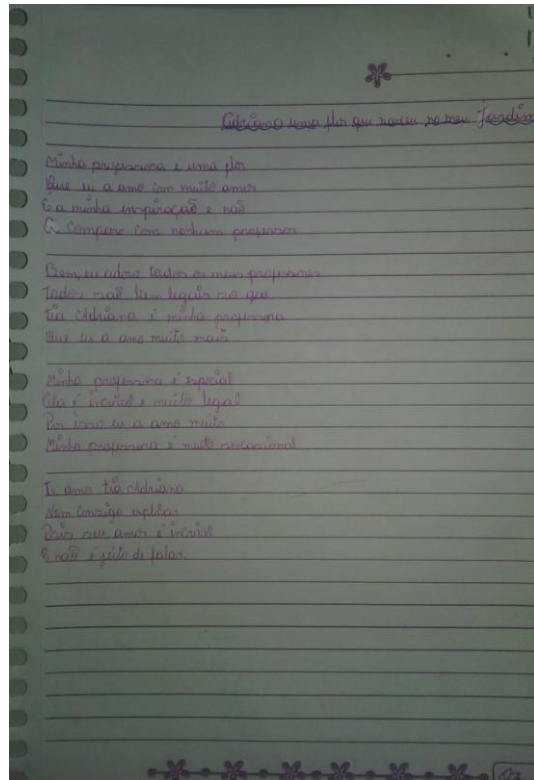 Adriana uma flor que nasceu no meu Jardim
Minha professora é uma flor
Que eu a amo com muito amor
É a minha inspiração e não
A compare com nenhum professor
Bem, eu adoro todos os meus professores
Todos são bem legais só que
Tia Adriana é minha professora
Que eu a amo muito mais
Minha professora é especial
Ela é incrível e muito legal
Por isso eu a amo muito
Minha professora é muito
Te amo tia Adriana
Nem consigo explicar
Pois seu amor é incrível
E não é jeito de falar.